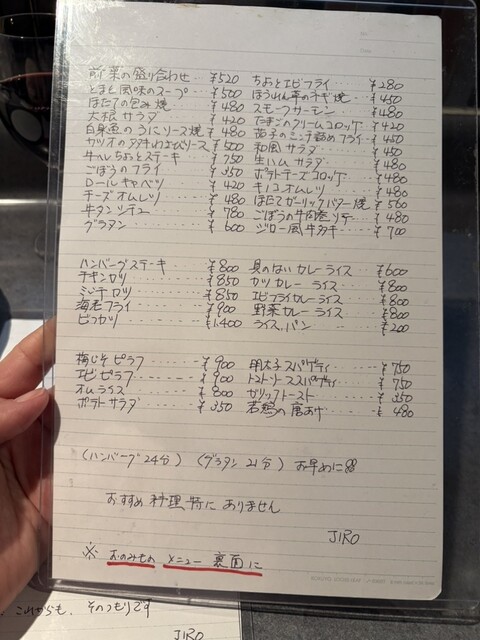 前菜の盛り合わせ ‥ ¥520 ちょとエビフライ ‥‥ ¥280
とまと風味のスープ ‥ ¥500 ほうれん草のネギ焼 ‥ ¥450
ほたての包み焼 ‥‥ ¥480 スモークサーモン ‥‥ ¥480
大根サラダ ‥‥ ¥420 たまごのクリームコロッケ ‥ ¥420
白身魚のうにソース焼 ‥ ¥480 茄子のミンチ詰めフライ ‥ ¥450
カツオのタタキわさびソース ‥ ¥500 和風サラダ ‥‥ ¥450
牛ヘレちょとステーキ ‥ ¥750 生ハムサラダ ‥‥ ¥480
ごぼうのフライ ‥‥ ¥350 ポテトチーズコロッケ ‥ ¥480
ロールキャベツ ‥‥ ¥420 キノコオムレツ ‥‥ ¥480
チーズオムレツ ‥‥ ¥480 ほたてガーリックバター焼 ¥560
牛タンシチュー ‥‥ ¥780 ごぼうの牛肉巻ソテー ‥ ¥480
グラタン ‥‥ ¥600 ジロー風牛タタキ ‥‥ ¥700
ハンバーグステーキ ‥‥ ¥800 具のないカレーライス ‥ ¥600
チキンカツ ‥‥ ¥850 カツカレーライス ‥‥ ¥800
ミンチカツ ‥‥ ¥850 エビフライカレーライス ‥ ¥800
海老フライ ‥‥ ¥900 野菜カレーライス ‥‥ ¥800
ビフカツ ‥‥ ¥1,400 ライス、パン ‥‥ ¥200
梅じそピラフ ‥‥ ¥900 明太子スパゲティ ‥‥ ¥750
エビピラフ ‥‥ ¥900 トマトソーススパゲティ ‥ ¥750
オムライス ‥‥ ¥800 ガリックトースト ‥‥ ¥350
ポテトサラダ ‥‥ ¥350 若鶏の唐あげ ‥‥ ¥480
(ハンバーグ24分) (グラタン21分) お早めに
おすすめ料理特にありません
JIRO
※ おのみもの メニュー 裏面に
これからも、そのつもりです
JIRO